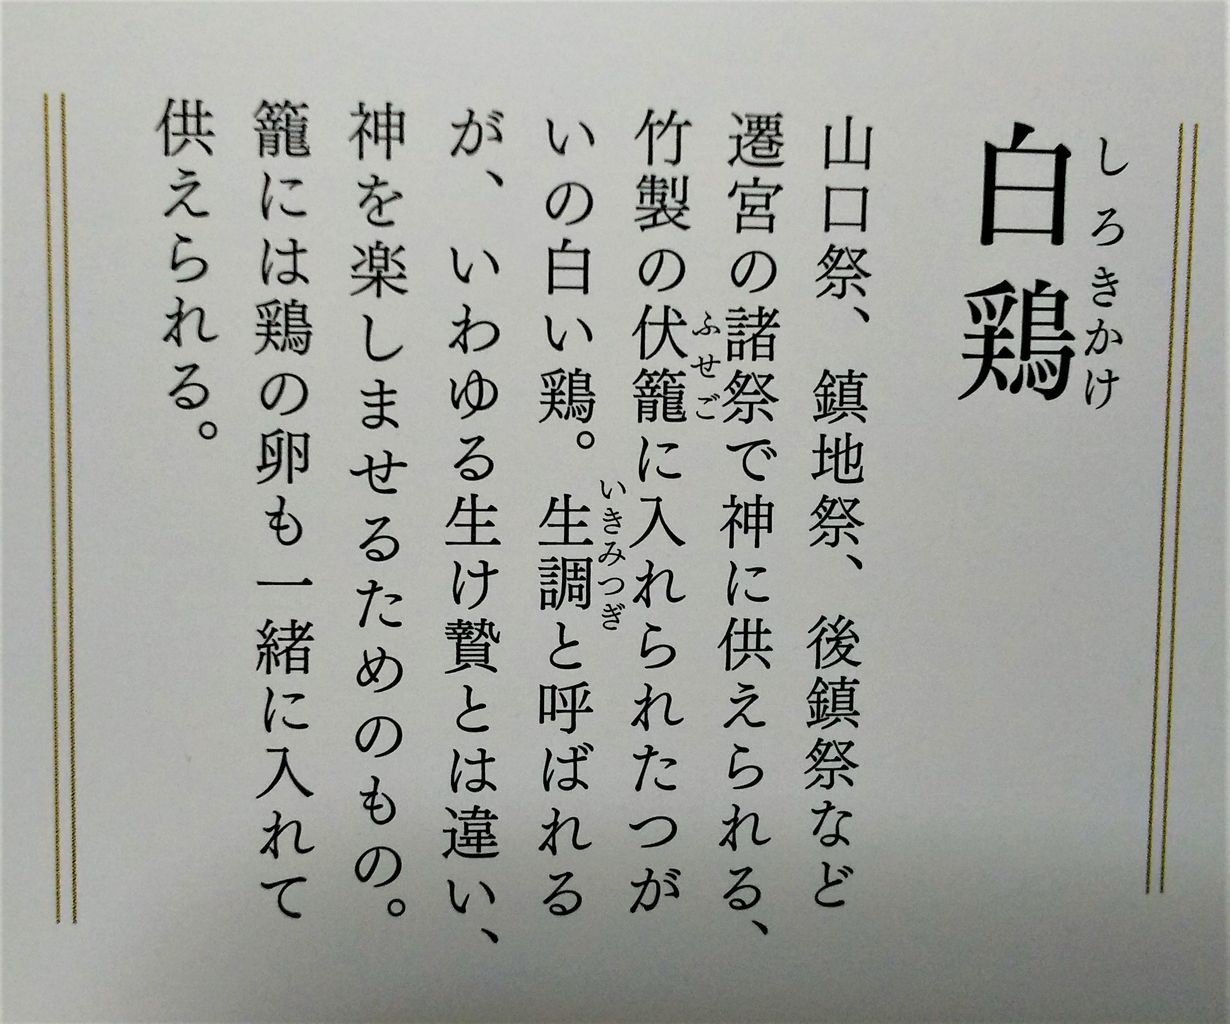 白鶏
しろきかけ
山口祭、鎮地祭、後鎮祭など
遷宮の諸祭で神に供えられる、
竹製の伏籠に入れられたつが
ふせご
いの白い鶏。生調と呼ばれる
いきみつぎ
が、いわゆる生け贄とは違い、
神を楽しませるためのもの。
籠には鶏の卵も一緒に入れて
供えられる。